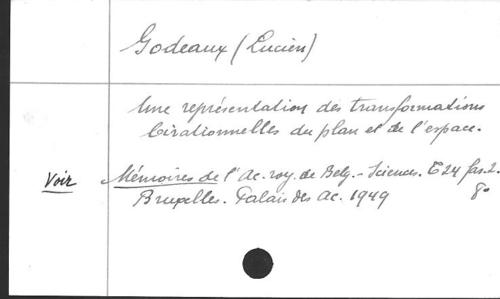 Godeaux (Lucien)
Une représentation des transformations
birationnelles du plan et de l'espace.
Voir Mémoires de l'Ac. roy. de Belg. - Sciences. T 24 fas. 2.
Bruxelles. Palais des Ac. 1949 8°